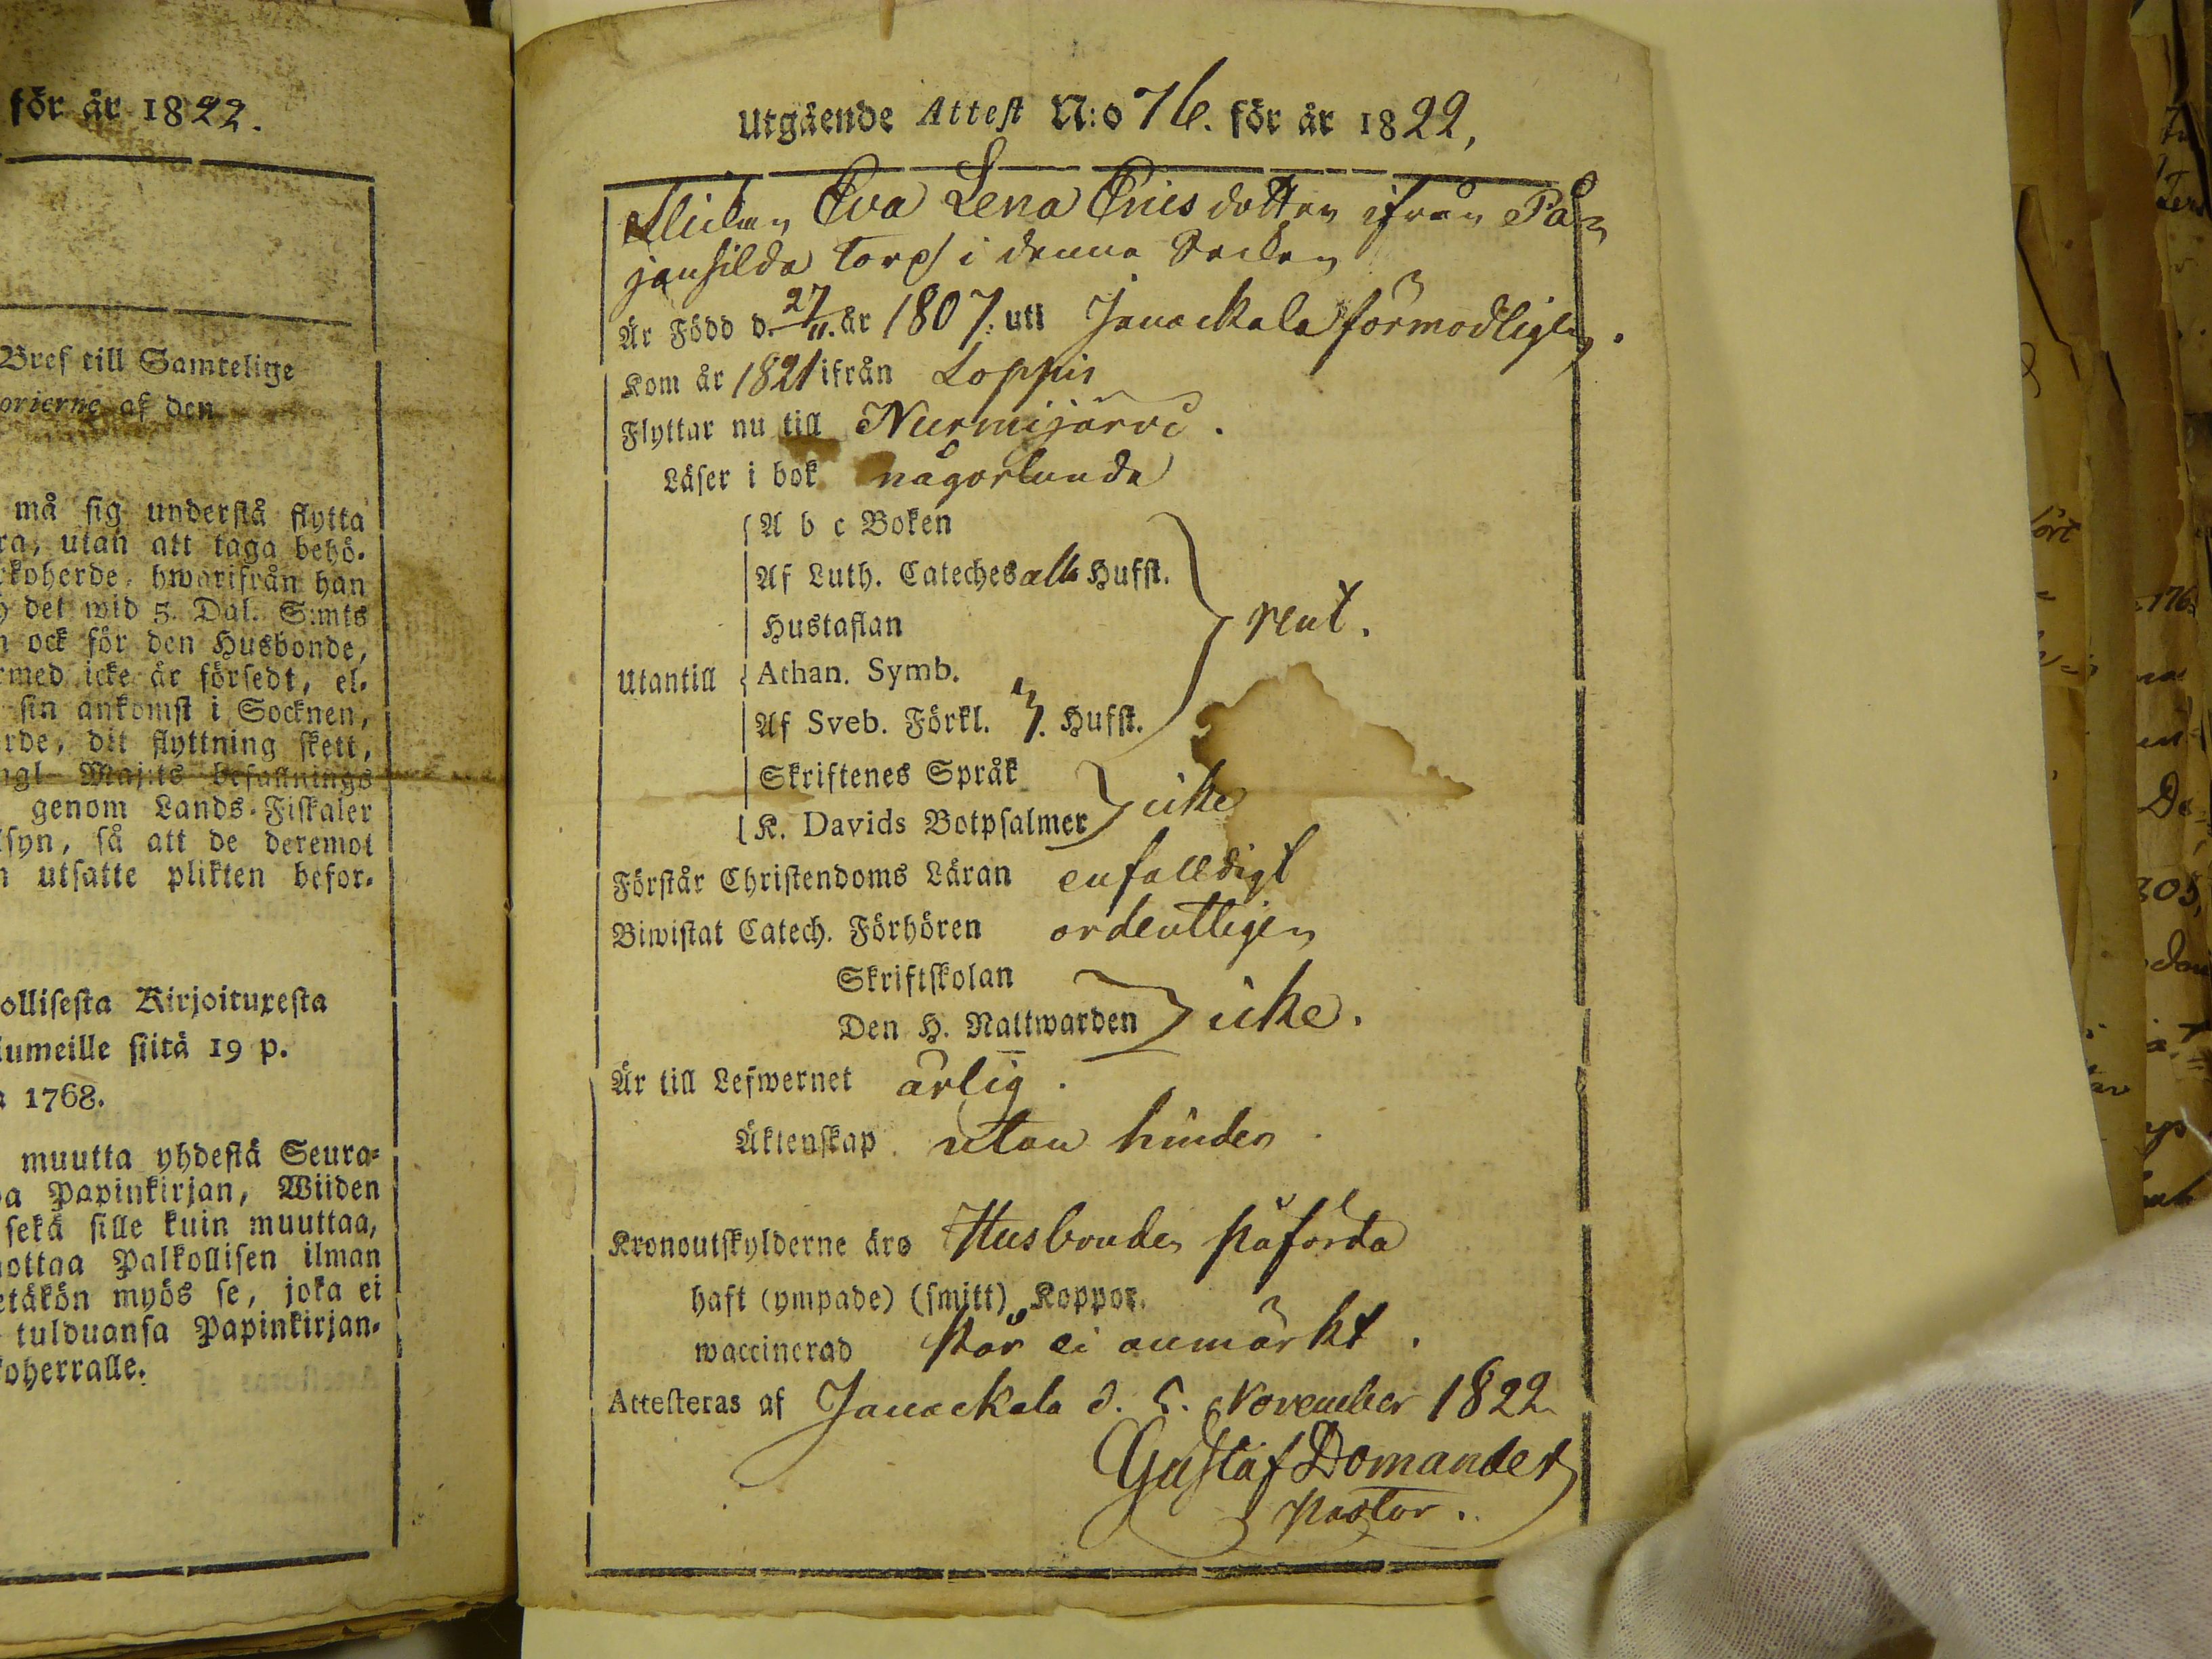 för år 1822.
Bref till Samtelige
orierne af den
må sig understå flytta
ra, utan att taga behö-
rkoherde, hwarifrån han
det wid 5. Dal. S:mts
ock för den Husbonde,
rmed icke är försedt, el-
sin ankomst i Socknen,
rde, dit flyttning skett,
ngl Maj:ts befallnings
genom Lands-Fiskaler
syn, så att de deremot
utsatte plikten befor-
ollisesta Kirjoituxesta
iumeille siitä 19 p.
1768.
muutta yhdestä Seura-
a Papinkirjan, Wiiden
sekä sille kuin muuttaa,
ottaa Palkollisen ilman
etäkön myös se, joka ei
tulduansa Papinkirjan-
oherralle.
Utgående Attest N:o 76. för år 1822,
Flickan Eva Lena Ericsdotter ifrån
torp i denna Socken
Är Född d. 27/11. år 1807. uti Janackala förmodligen.
Kom år 1821 ifrån Loppis
Flyttar nu till Nurmijärvi.
Läser i bok någorlunda
A b c Boken
Af Luth. Cateches alla Hufst.
Hustaflan
rent.
Utantill
Athan. Symb.
Af Sveb. Förkl. Hufst.
Skriftenes Språk
K. Davids Botpsalmer icke
Förstår Christendoms Läran enfalldigt
Biwistat Catech. Förhören ordentligen
Skriftskolan
Den H. Nattwarden icke.
Är till Lefwernet ärlig.
Äktenskap utan hinder
Kronoutskylderne äro Husbonden påförda
haft (ympade) (smitt) Koppor.
waccinerad står ei anmärkt.
Attesteras af Janackala d. 5. November 1822
Gustaf Domander
Pastor.